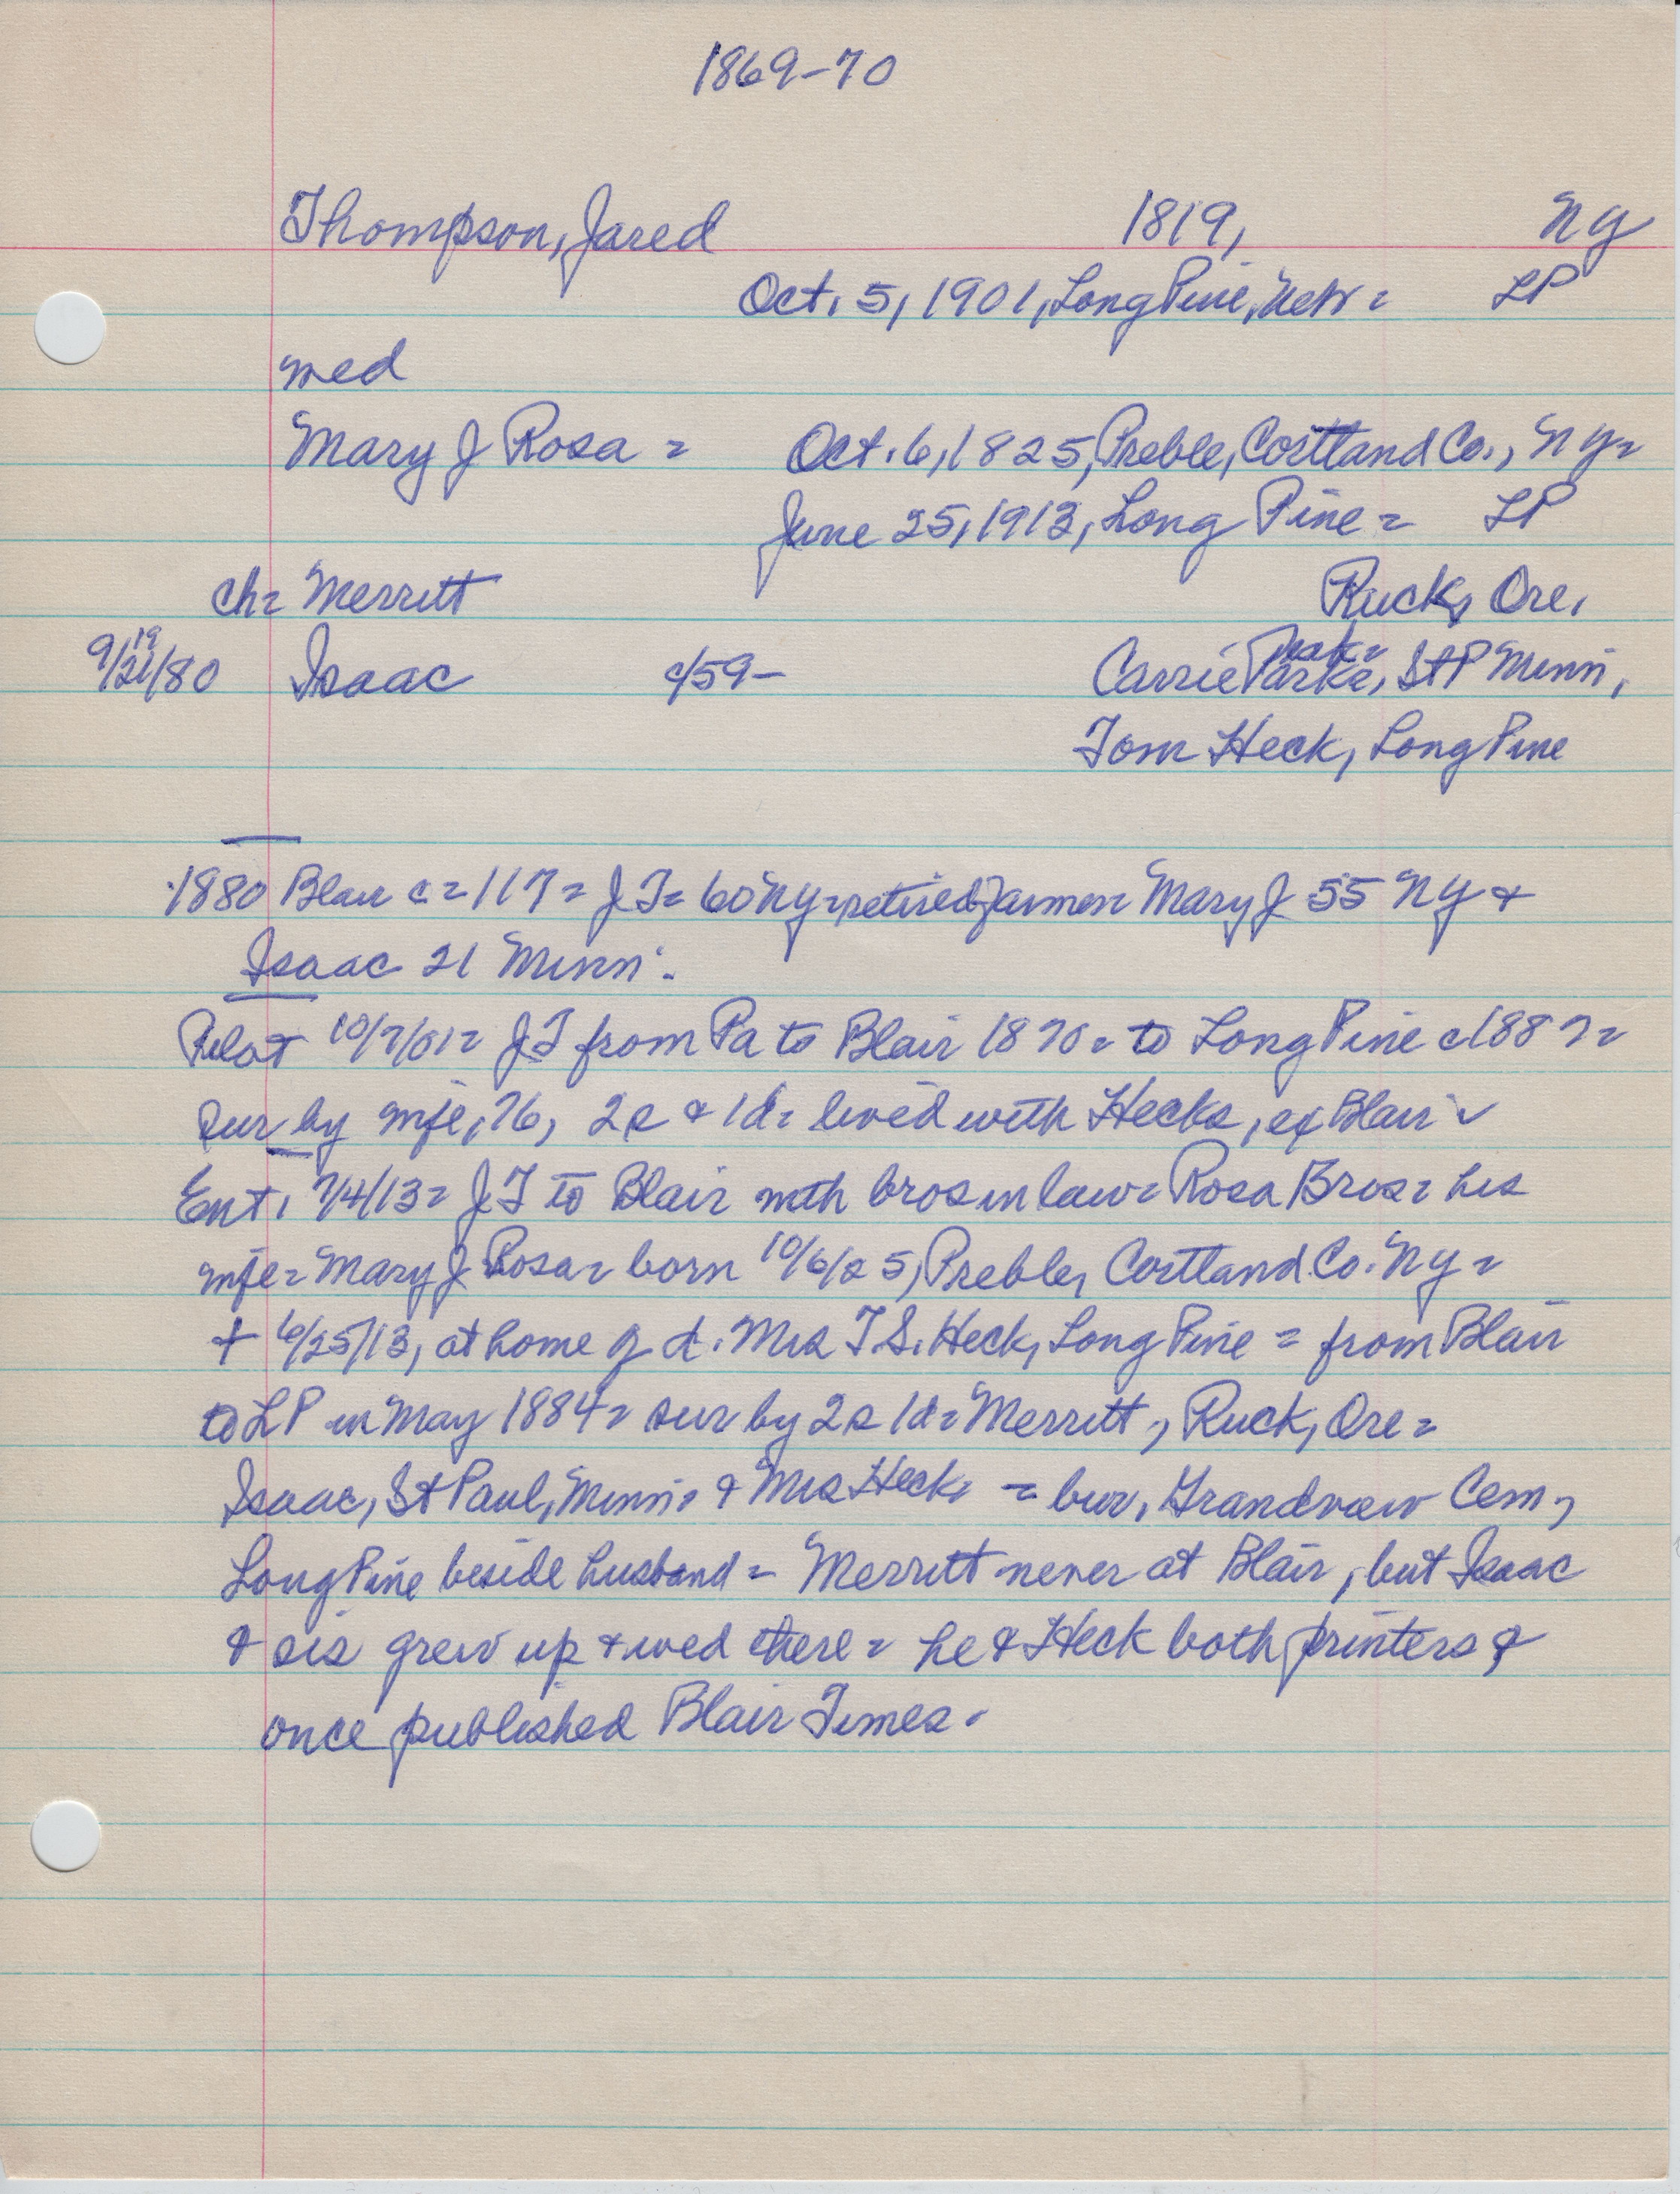 1869-70
Thompson, Jared 1819, NY
Oct. 5, 1901, Long Pine, Nebr = LP
wed
Mary J Rosa = Oct. 6, 1825, Preble, Cortland Co., NY=
June 25, 1913, Long Pine = LP
ch= Merritt Ruck, Ore.
19
9/21/80 Isaac c/59- Carrie Parke, St P Minn,
Tom Heck, Long Pine
1880 Blair c=117= JT= 60 NY=retired farmer= Mary J 55 NY &
Isaac 21 Minn.
Pilot 10/7/01= JT from Pa to Blair 1870= to Long Pine c1887=
sur by wife, 76, 2s & 1d= lived with Hecks, ex Blair
Ent, 7/4/13= JT to Blair with bros in law= Rosa Bros= his
wife= Mary J Rosa= born 10/6/25, Preble, Cortland Co. NY=
+ 6/25/13, at home of d. Mrs T.S. Heck, Long Pine = from Blair
to LP in May 1884= sur by 2s 1d= Merritt, Ruck, Ore=
Isaac, St Paul, Minn. & Mrs Heck = bur, Grandview Cem,
Long Pine beside husband= Merritt never at Blair, but Isaac
& sis grew up & wed there= he & Heck both printers &
once published Blair Times.